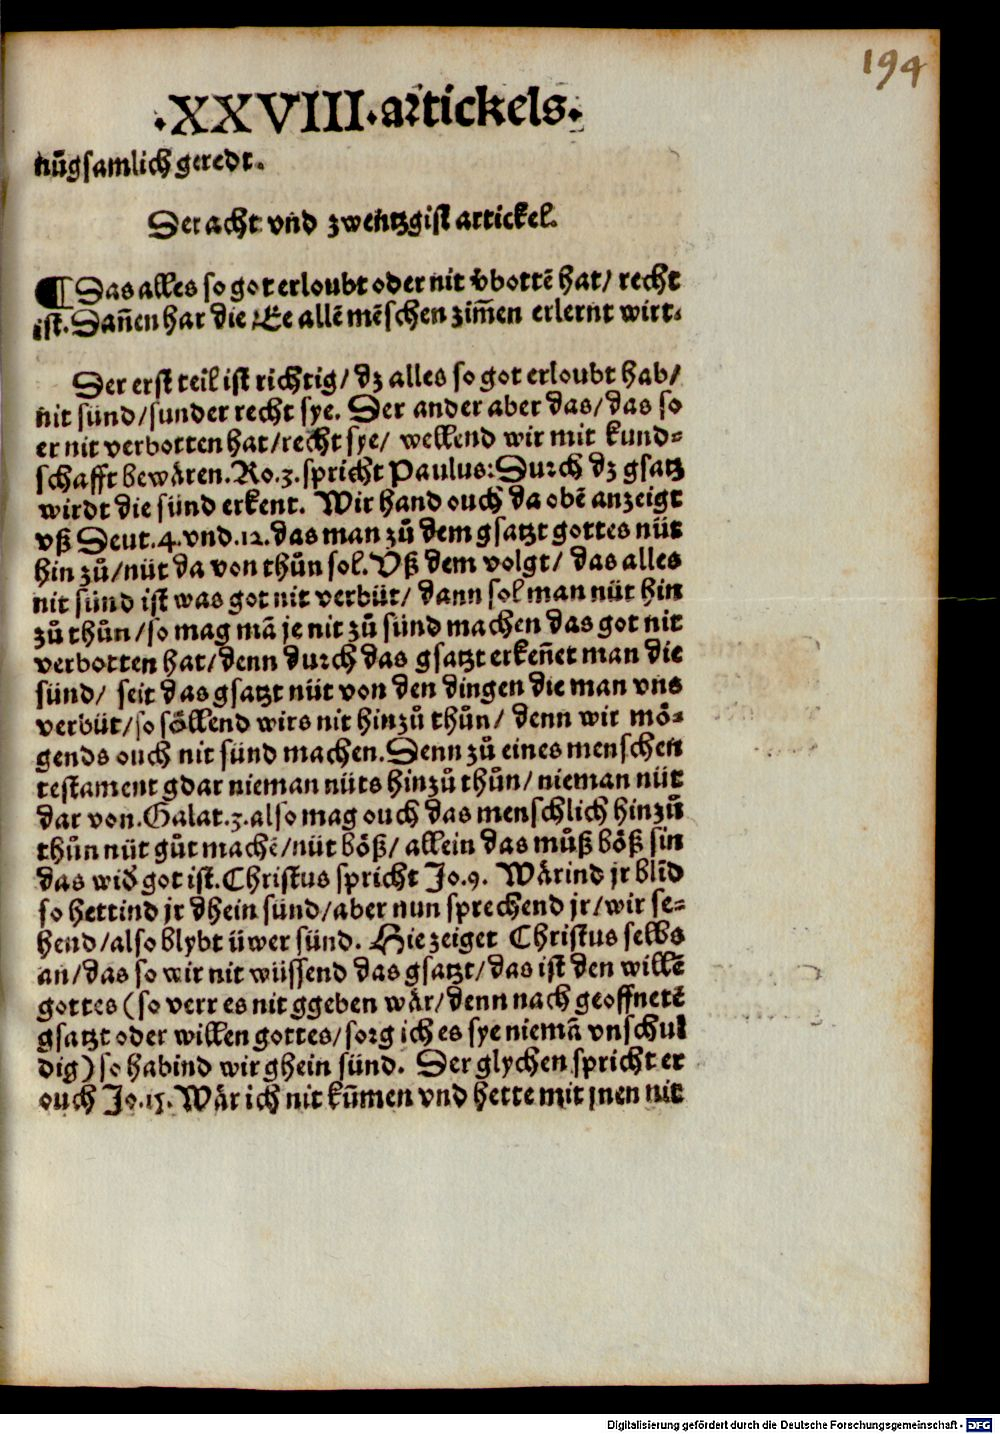 194
.XXVIII.artickels.
nügsamlich geredt.
Der acht vnd zwentzgist artickel.
¶ Das alles so got erloubt oder nit v̄bottē hat/ recht
ist. Dañen har die Ee allē mēschen zim̃en erlernt wirt.
Der erst teil ist richtig/ dz alles so got erloubt hab/
nit sünd/sunder recht sye. Der ander aber das/das so
er nit verbotten hat/recht sye/ wellend wir mit kund=
schafft bewären.Ro.3.spricht Paulus:Durch dz gsatz
wirdt die sünd erkent. Wir hand ouch da obē anzeigt
vß Deut.4.vnd.12.das man zů dem gsatzt gottes nüt
hin zů/nüt da von thůn sol.Vß dem volgt/ das alles
nit sünd ist was got nit verbüt/ dann sol man nüt hin
zů thůn/so mag mā je nit zů sünd machen das got nit
verbotten hat/denn durch das gsatzt erkeñet man die
sünd/ seit das gsatzt nüt von den dingen die man vns
verbüt/so söllend wirs nit hinzů thůn/ denn wir mö=
gends ouch nit sünd machen.Denn zů eines menschen
testament gdar nieman nüts hinzů thůn/ nieman nüt
dar von.Galat.3.also mag ouch das menschlich hinzů
thůn nüt gůt machē/nüt böß/ allein das můß böß sin
das wid̄ got ist.Christus spricht Jo.9. Wärind jr blīd
so hettind jr dhein sünd/aber nun sprechend jr/wir se=
hend/also blybt üwer sünd. Hie zeiget Christus selbs
an/das so wir nit wüssend das gsatzt/das ist den willē
gottes (so verr es nit ggeben wär/denn nach geoffnetē
gsatzt oder willen gottes/sorg ich es sye niemā vnschul
dig) so habind wir ghein sünd. Der glychen spricht er
ouch Jo.15. Wär ich nit kūmen vnd hette mit jnen nit
Digitalisierung gefördert durch die Deutsche Forschungsgemeinschaft - DFG